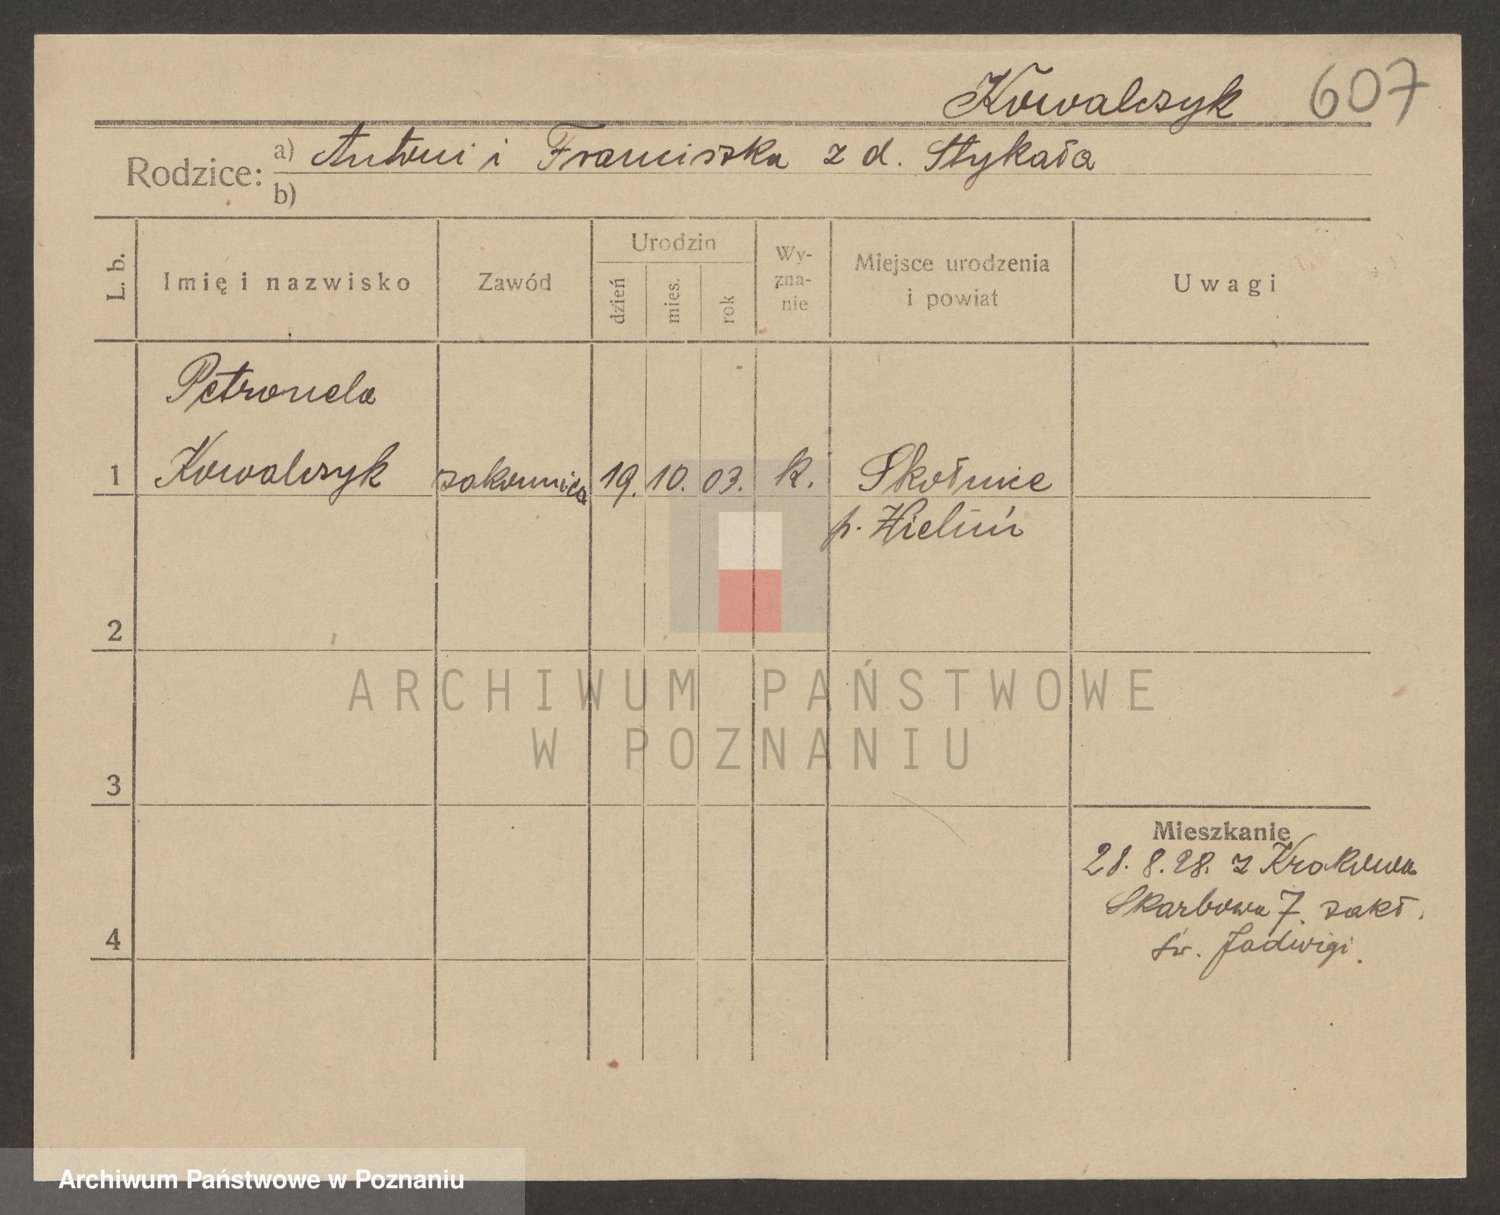 Kowalczyk 607
Rodzice: a) Antoni i Franciszka z d. Stykała
b)
L. b.
Imię i nazwisko
Zawód
Urodzin
dzień
mies.
rok
Wy-
zna-
nie
Miejsce urodzenia
i powiat
Uwagi
Petronela
1 Kowalczyk zakonnica 19. 10. 03. k.
p. Wieluń
2
ARCHIWUM PAŃSTWOWE
W POZNANIU
3
Mieszkanie
21. 8. 28. z Krakowa
4
Skarbowa 7. zakł.
św. Jadwigi.
Archiwum Państwowe w Poznaniu